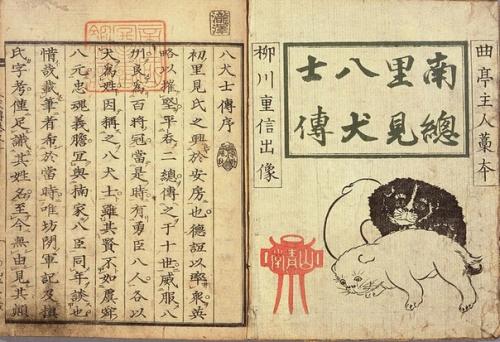 曲亭主人藁本
南總
里見
八犬
士傳
柳川重信出像
瀧澤
八犬士傳序
初里見氏之興於安房也德誼以率衆英
略以摧堅平呑二總傳之于十世威服八
州良爲百將冠當是時有勇臣八人各以
犬爲姓因稱之八犬士雖其賢不如虞舜
八元忠魂義膽宜與楠家八臣同年談也
惜哉載筆者希於當時唯坊間軍記及槇
氏字考僅足識其姓名至今無由見其顛